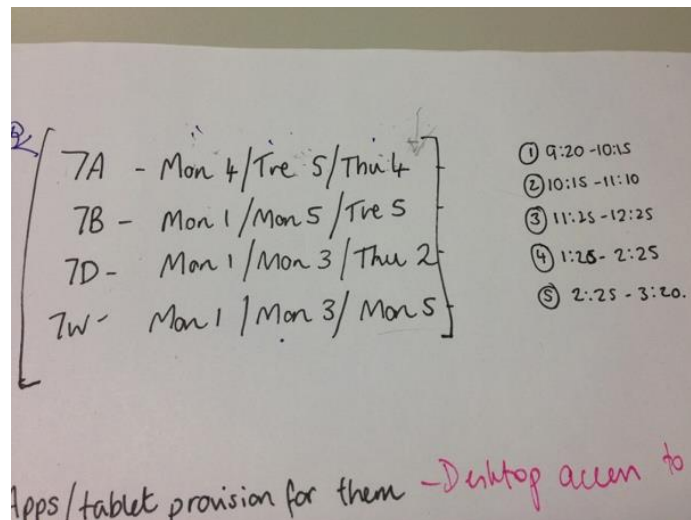 7A - Mon 4/Tre 5/Thu 4
7B - Mon 1/Mon 5/Tre 5
7D- Mon 1/Mon 3/Thu 2
7W- Mon 1/Mon 3/Mon 5
① 9:20-10:15
② 10:15-11:10
③ 11:25-12:25
④ 1:25-2:25
⑤ 2:25-3:20.
Apps/tablet provision for them - Desktop access to